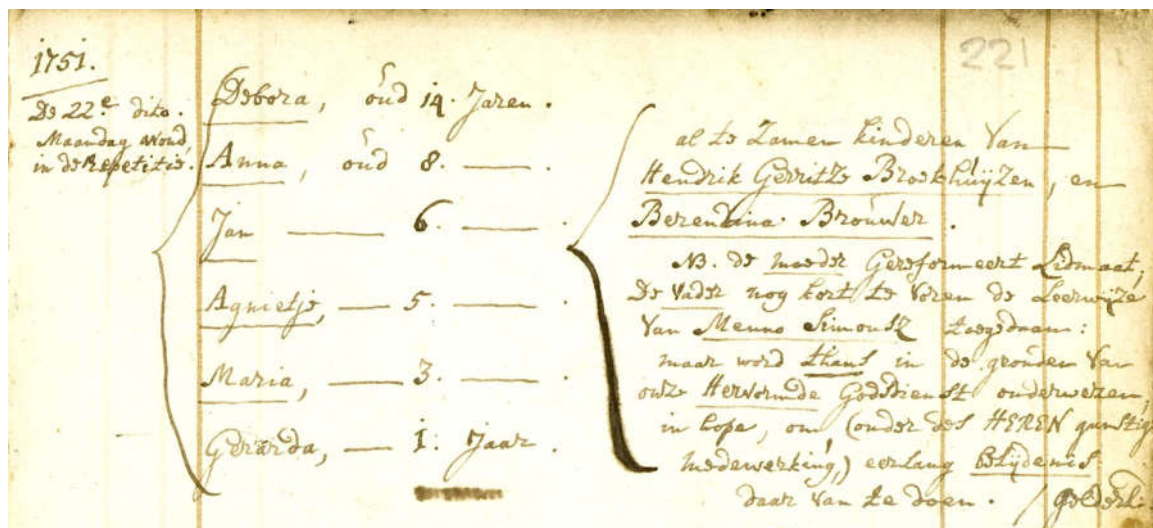 1751.
221
De 22.e dito.
Maandag avond,
in de Repetitie.
Debora, oud 14. Jaren.
Anna, oud 8. —— .
Jan —— 6. —— .
Agnietje, — 5. —— .
Maria, —— 3. —— .
Gerarda, — 1. Jaar.
al te zamen kinderen van
Hendrik Gerritze Broekhuijzen, en
Berendina Brouwer.
NB. de moeder Gereformeert Lidmaat;
De vader nog kort te voren de Leerwijze
van Menno Simonsz toegedaan:
maar word thans in de gronden van
onze Hervormde Godsdienst onderwezen,
in hope, om, (onder des HEREN gunstige
medewerking,) eerlang Belijdenis
daar van te doen.